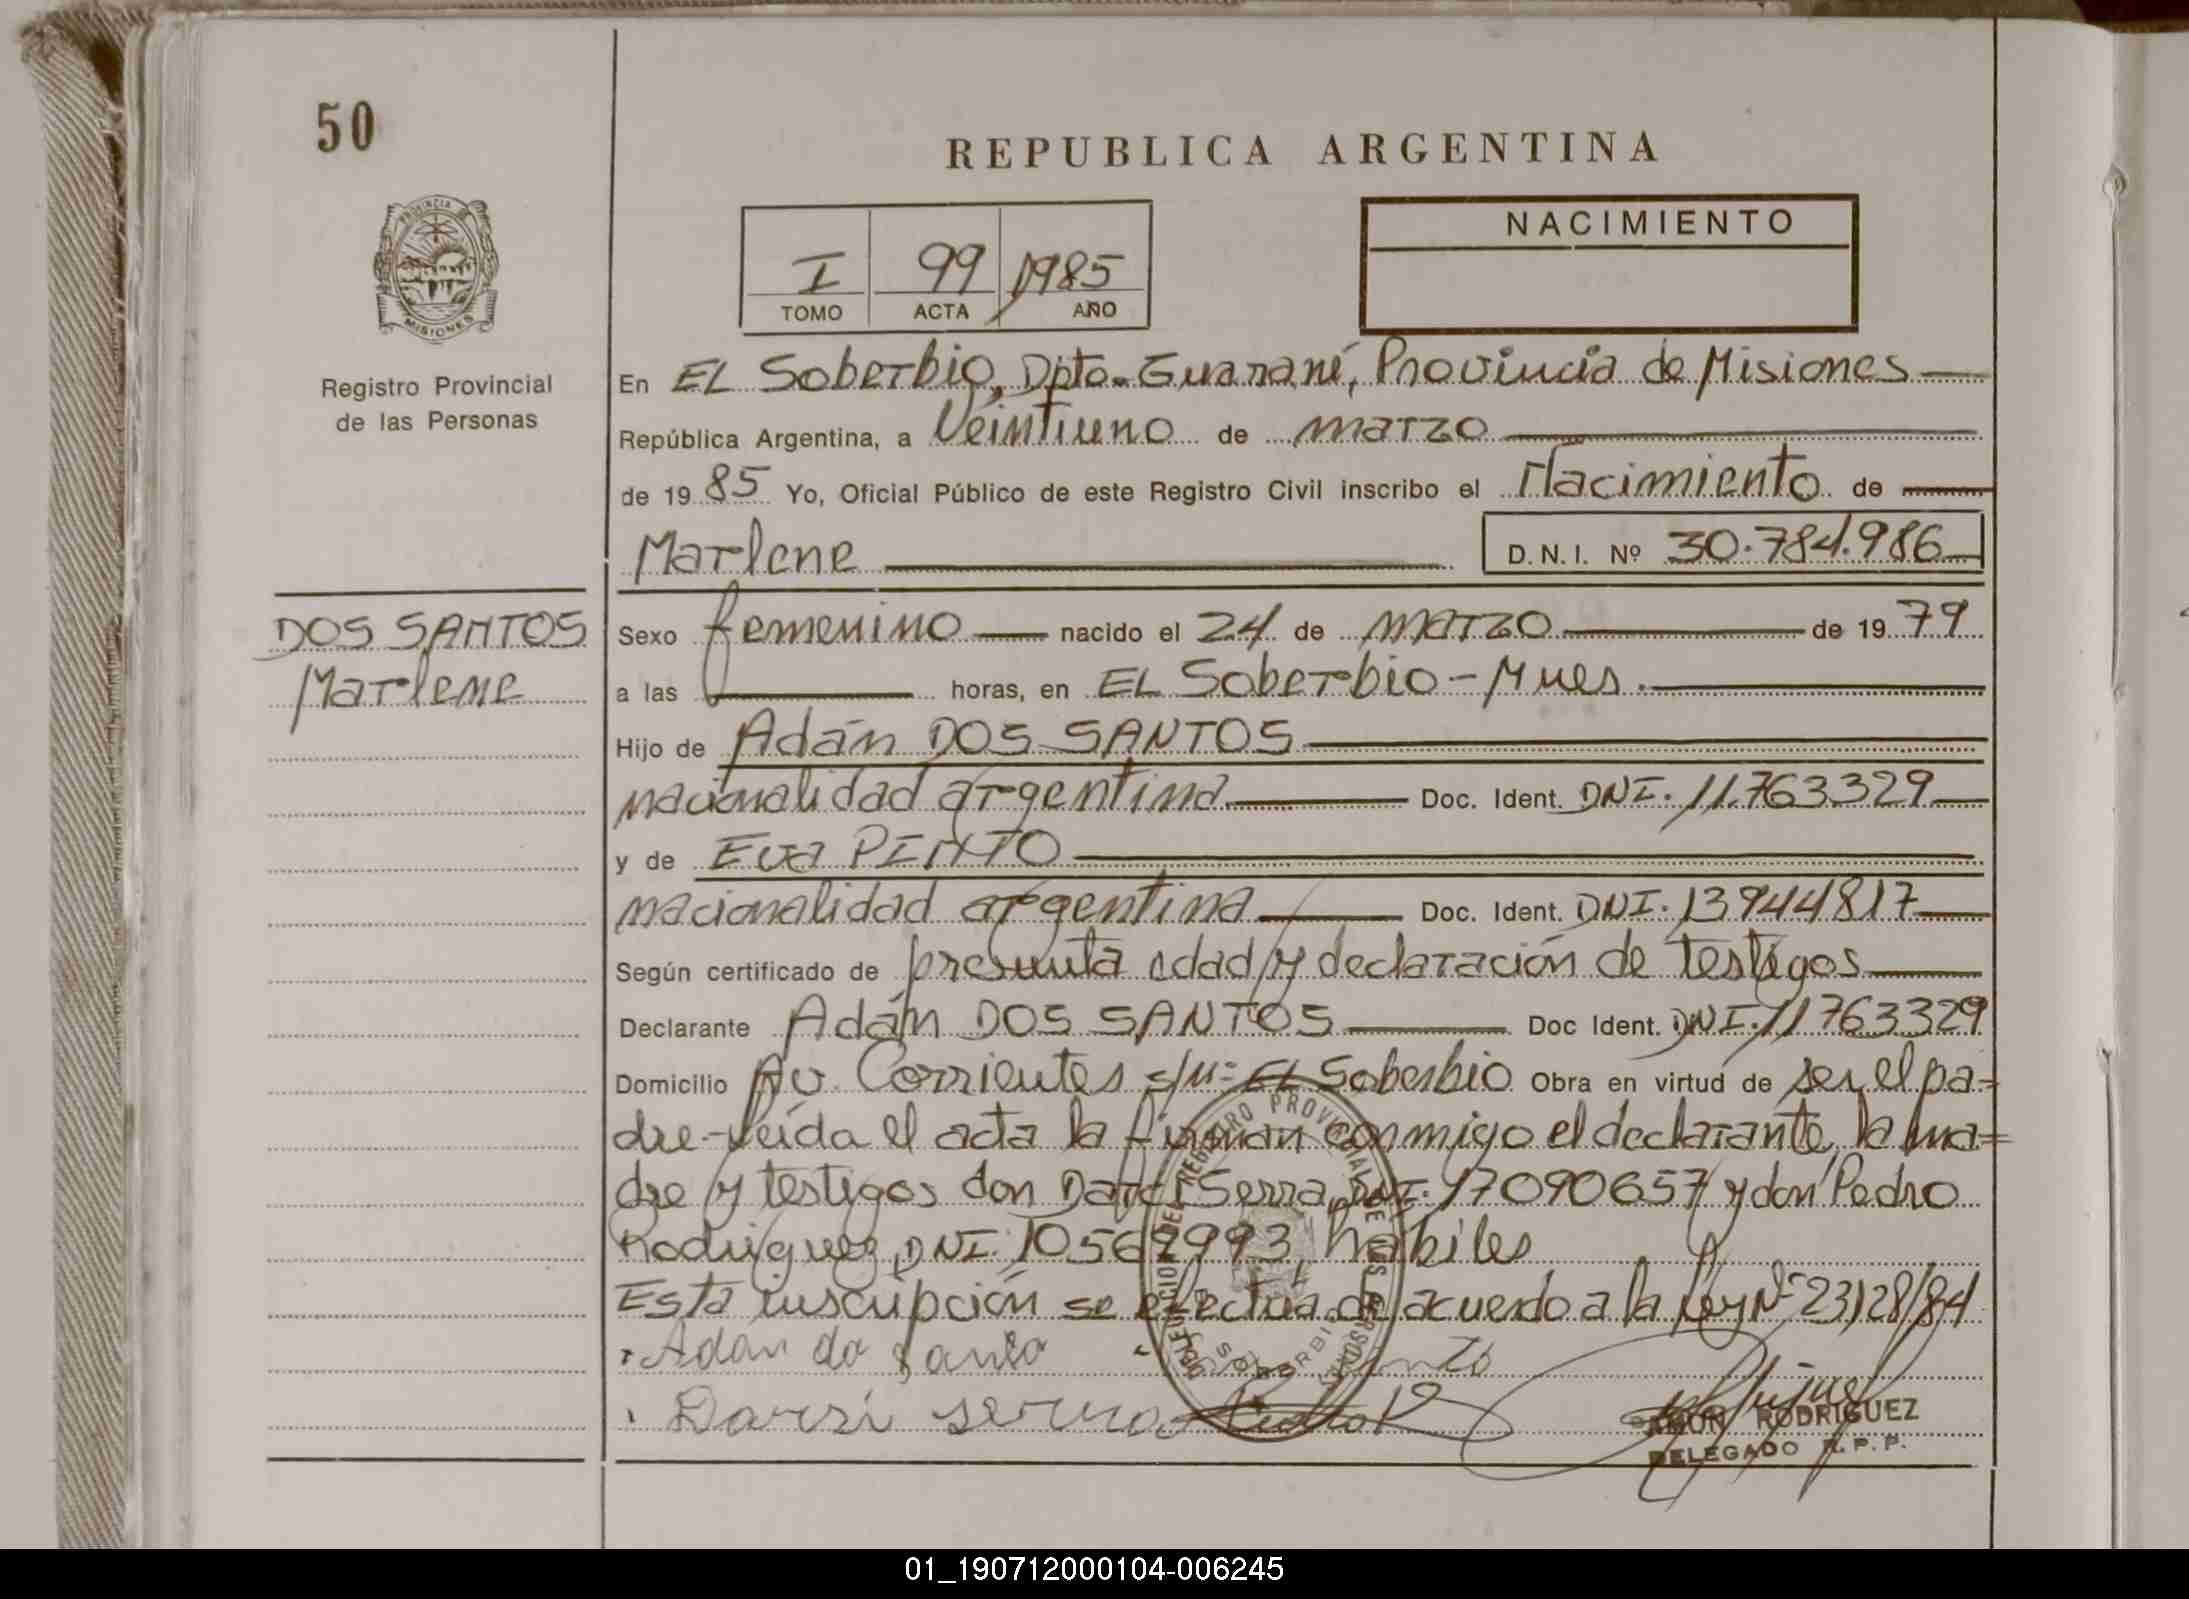 50
REPUBLICA ARGENTINA
PROVINCIA
MISIONES
Registro Provincial
de las Personas
I 99 1985
TOMO ACTA AÑO
NACIMIENTO
En EL Soberbio, Dpto. Guaraní, Provincia de Misiones
República Argentina, a Veintiuno de marzo
de 19 85 Yo, Oficial Público de este Registro Civil inscribo el Nacimiento de
Marlene D.N.I. Nº 30.784.986
DOS SANTOS
Marlene
Sexo femenino nacido el 24 de marzo de 19 79
a las horas, en EL Soberbio - Mnes.
Hijo de Adán DOS SANTOS
nacionalidad argentina Doc. Ident. DNI. 11.763329
y de Eva PINTO
nacionalidad argentina Doc. Ident. DNI. 13944817
Según certificado de presunta edad y declaración de testigos
Declarante Adán DOS SANTOS Doc Ident. DNI. 11763329
Domicilio Av. Corrientes s/n: EL Soberbio Obra en virtud de ser el pa=
dre - leída el acta la firman conmigo el declarante, la ma=
dre y testigos don Darci Serra, DNI. 17090657 y don Pedro
Rodriguez, DNI. 10562993, hábiles
Esta inscripción se efectúa de acuerdo a la ley Nº 23128/84
Adan do santo
Darsi serra
RAMON RODRIGUEZ
DELEGADO R.P.P.
DELEGACION DEL REGISTRO PROVINCIAL DE LAS PERSONAS
SOBERBIO
01_190712000104-006245